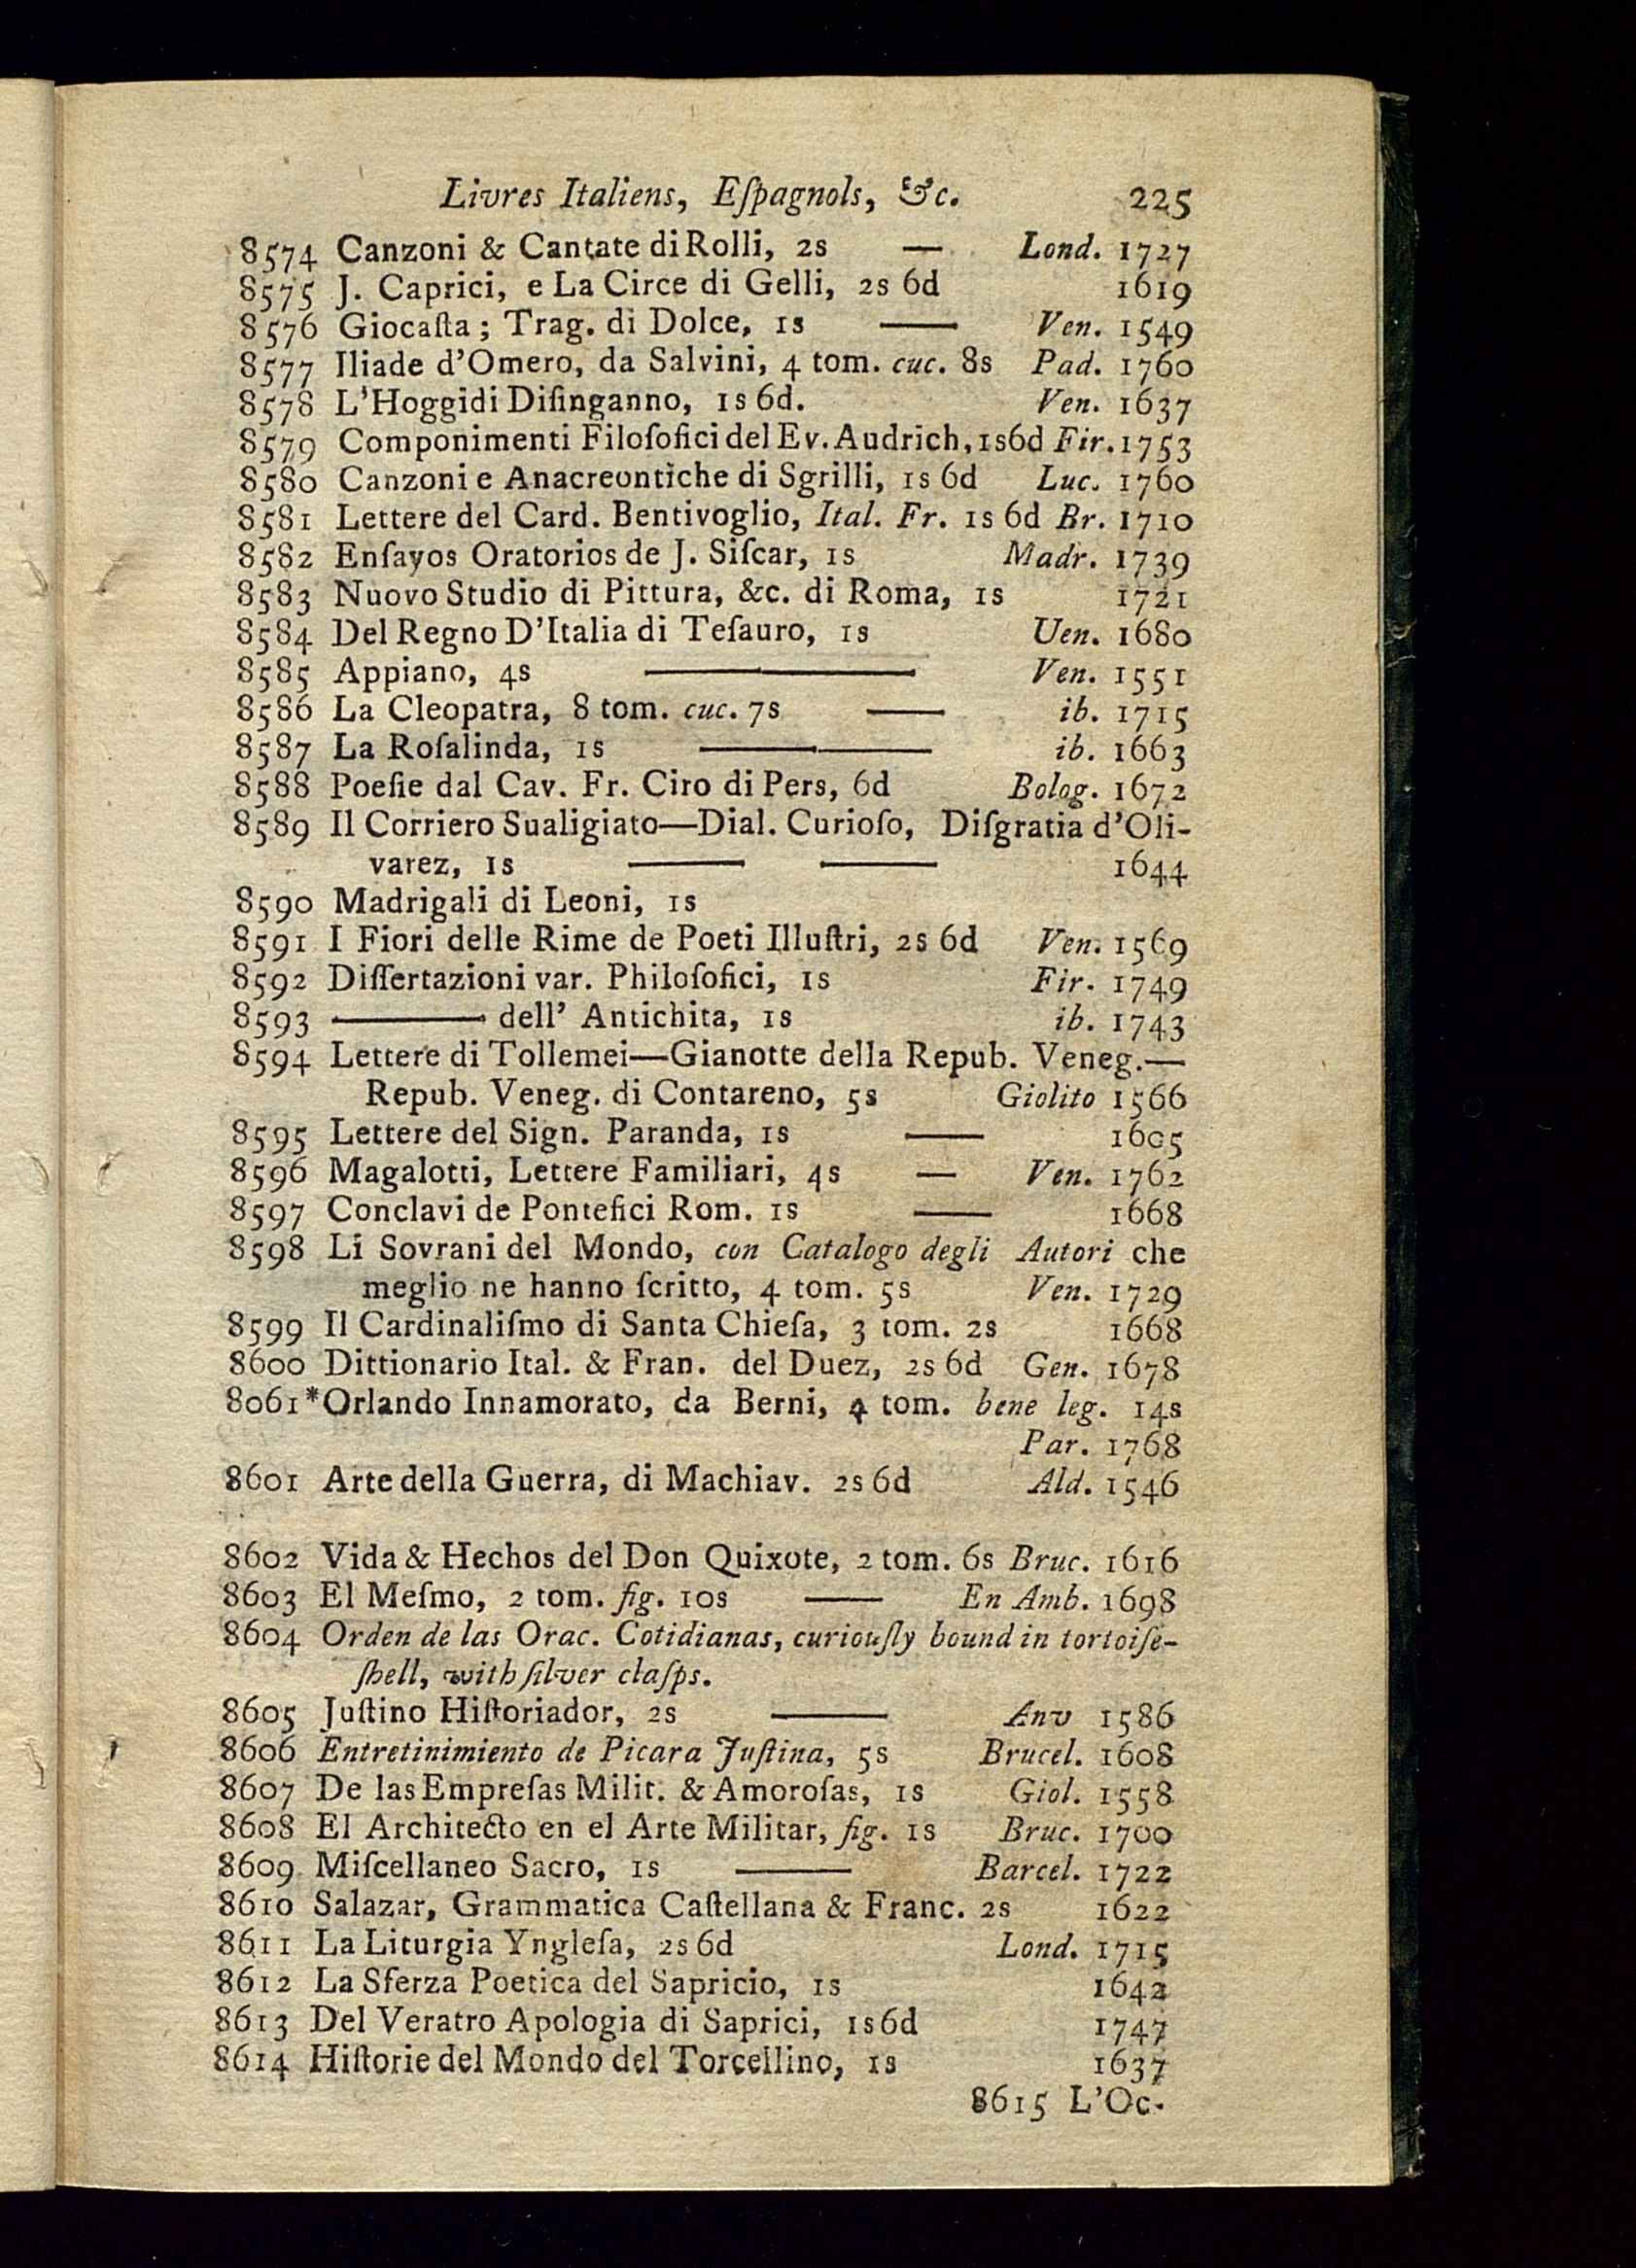 Livres Italiens, Eſpagnols, &c. 225
8574 Canzoni & Cantate di Rolli, 2s — Lond. 1727
8575 J. Caprici, e La Circe di Gelli, 2s 6d 1619
8576 Giocaſta; Trag. di Dolce, 1s — Ven. 1549
8577 Iliade d'Omero, da Salvini, 4 tom. cuc. 8s Pad. 1760
8578 L'Hoggidi Diſinganno, 1s 6d. Ven. 1637
8579 Componimenti Filoſofici del Ev. Audrich, 1s6d Fir. 1753
8580 Canzoni e Anacreontiche di Sgrilli, 1s 6d Luc. 1760
8581 Lettere del Card. Bentivoglio, Ital. Fr. 1s 6d Br. 1710
8582 Enſayos Oratorios de J. Siſcar, 1s Madr. 1739
8583 Nuovo Studio di Pittura, &c. di Roma, 1s 1721
8584 Del Regno D'Italia di Teſauro, 1s Uen. 1680
8585 Appiano, 4s — Ven. 1551
8586 La Cleopatra, 8 tom. cuc. 7s — ib. 1715
8587 La Roſalinda, 1s — ib. 1663
8588 Poeſie dal Cav. Fr. Ciro di Pers, 6d Bolog. 1672
8589 Il Corriero Sualigiato—Dial. Curioſo, Diſgratia d'Oli-
varez, 1s — — 1644
8590 Madrigali di Leoni, 1s
8591 I Fiori delle Rime de Poeti Illuſtri, 2s 6d Ven. 1569
8592 Diſſertazioni var. Philoſofici, 1s Fir. 1749
8593 — dell' Antichita, 1s ib. 1743
8594 Lettere di Tollemei—Gianotte della Repub. Veneg.—
Repub. Veneg. di Contareno, 5s Giolito 1566
8595 Lettere del Sign. Paranda, 1s — 1605
8596 Magalotti, Lettere Familiari, 4s — Ven. 1762
8597 Conclavi de Pontefici Rom. 1s — 1668
8598 Li Sovrani del Mondo, con Catalogo degli Autori che
meglio ne hanno ſcritto, 4 tom. 5s Ven. 1729
8599 Il Cardinaliſmo di Santa Chieſa, 3 tom. 2s 1668
8600 Dittionario Ital. & Fran. del Duez, 2s 6d Gen. 1678
8061*Orlando Innamorato, da Berni, 4 tom. bene leg. 14s
Par. 1768
8601 Arte della Guerra, di Machiav. 2s 6d Ald. 1546
8602 Vida & Hechos del Don Quixote, 2 tom. 6s Bruc. 1616
8603 El Meſmo, 2 tom. fig. 10s — En Amb. 1698
8604 Orden de las Orac. Cotidianas, curiouſly bound in tortoiſe-
ſhell, with ſilver claſps.
8605 Juſtino Hiſtoriador, 2s — Anv 1586
8606 Entretinimiento de Picara Juſtina, 5s Brucel. 1608
8607 De las Empreſas Milit. & Amoroſas, 1s Giol. 1558
8608 El Architecto en el Arte Militar, fig. 1s Bruc. 1700
8609 Miſcellaneo Sacro, 1s — Barcel. 1722
8610 Salazar, Grammatica Caſtellana & Franc. 2s 1622
8611 La Liturgia Yngleſa, 2s 6d Lond. 1715
8612 La Sferza Poetica del Sapricio, 1s 1642
8613 Del Veratro Apologia di Saprici, 1s6d 1747
8614 Hiſtorie del Mondo del Torcellino, 1s 1637
8615 L'Oc-